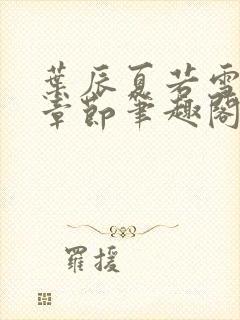 葉辰夏若雪
章節筆趣閣
羅援